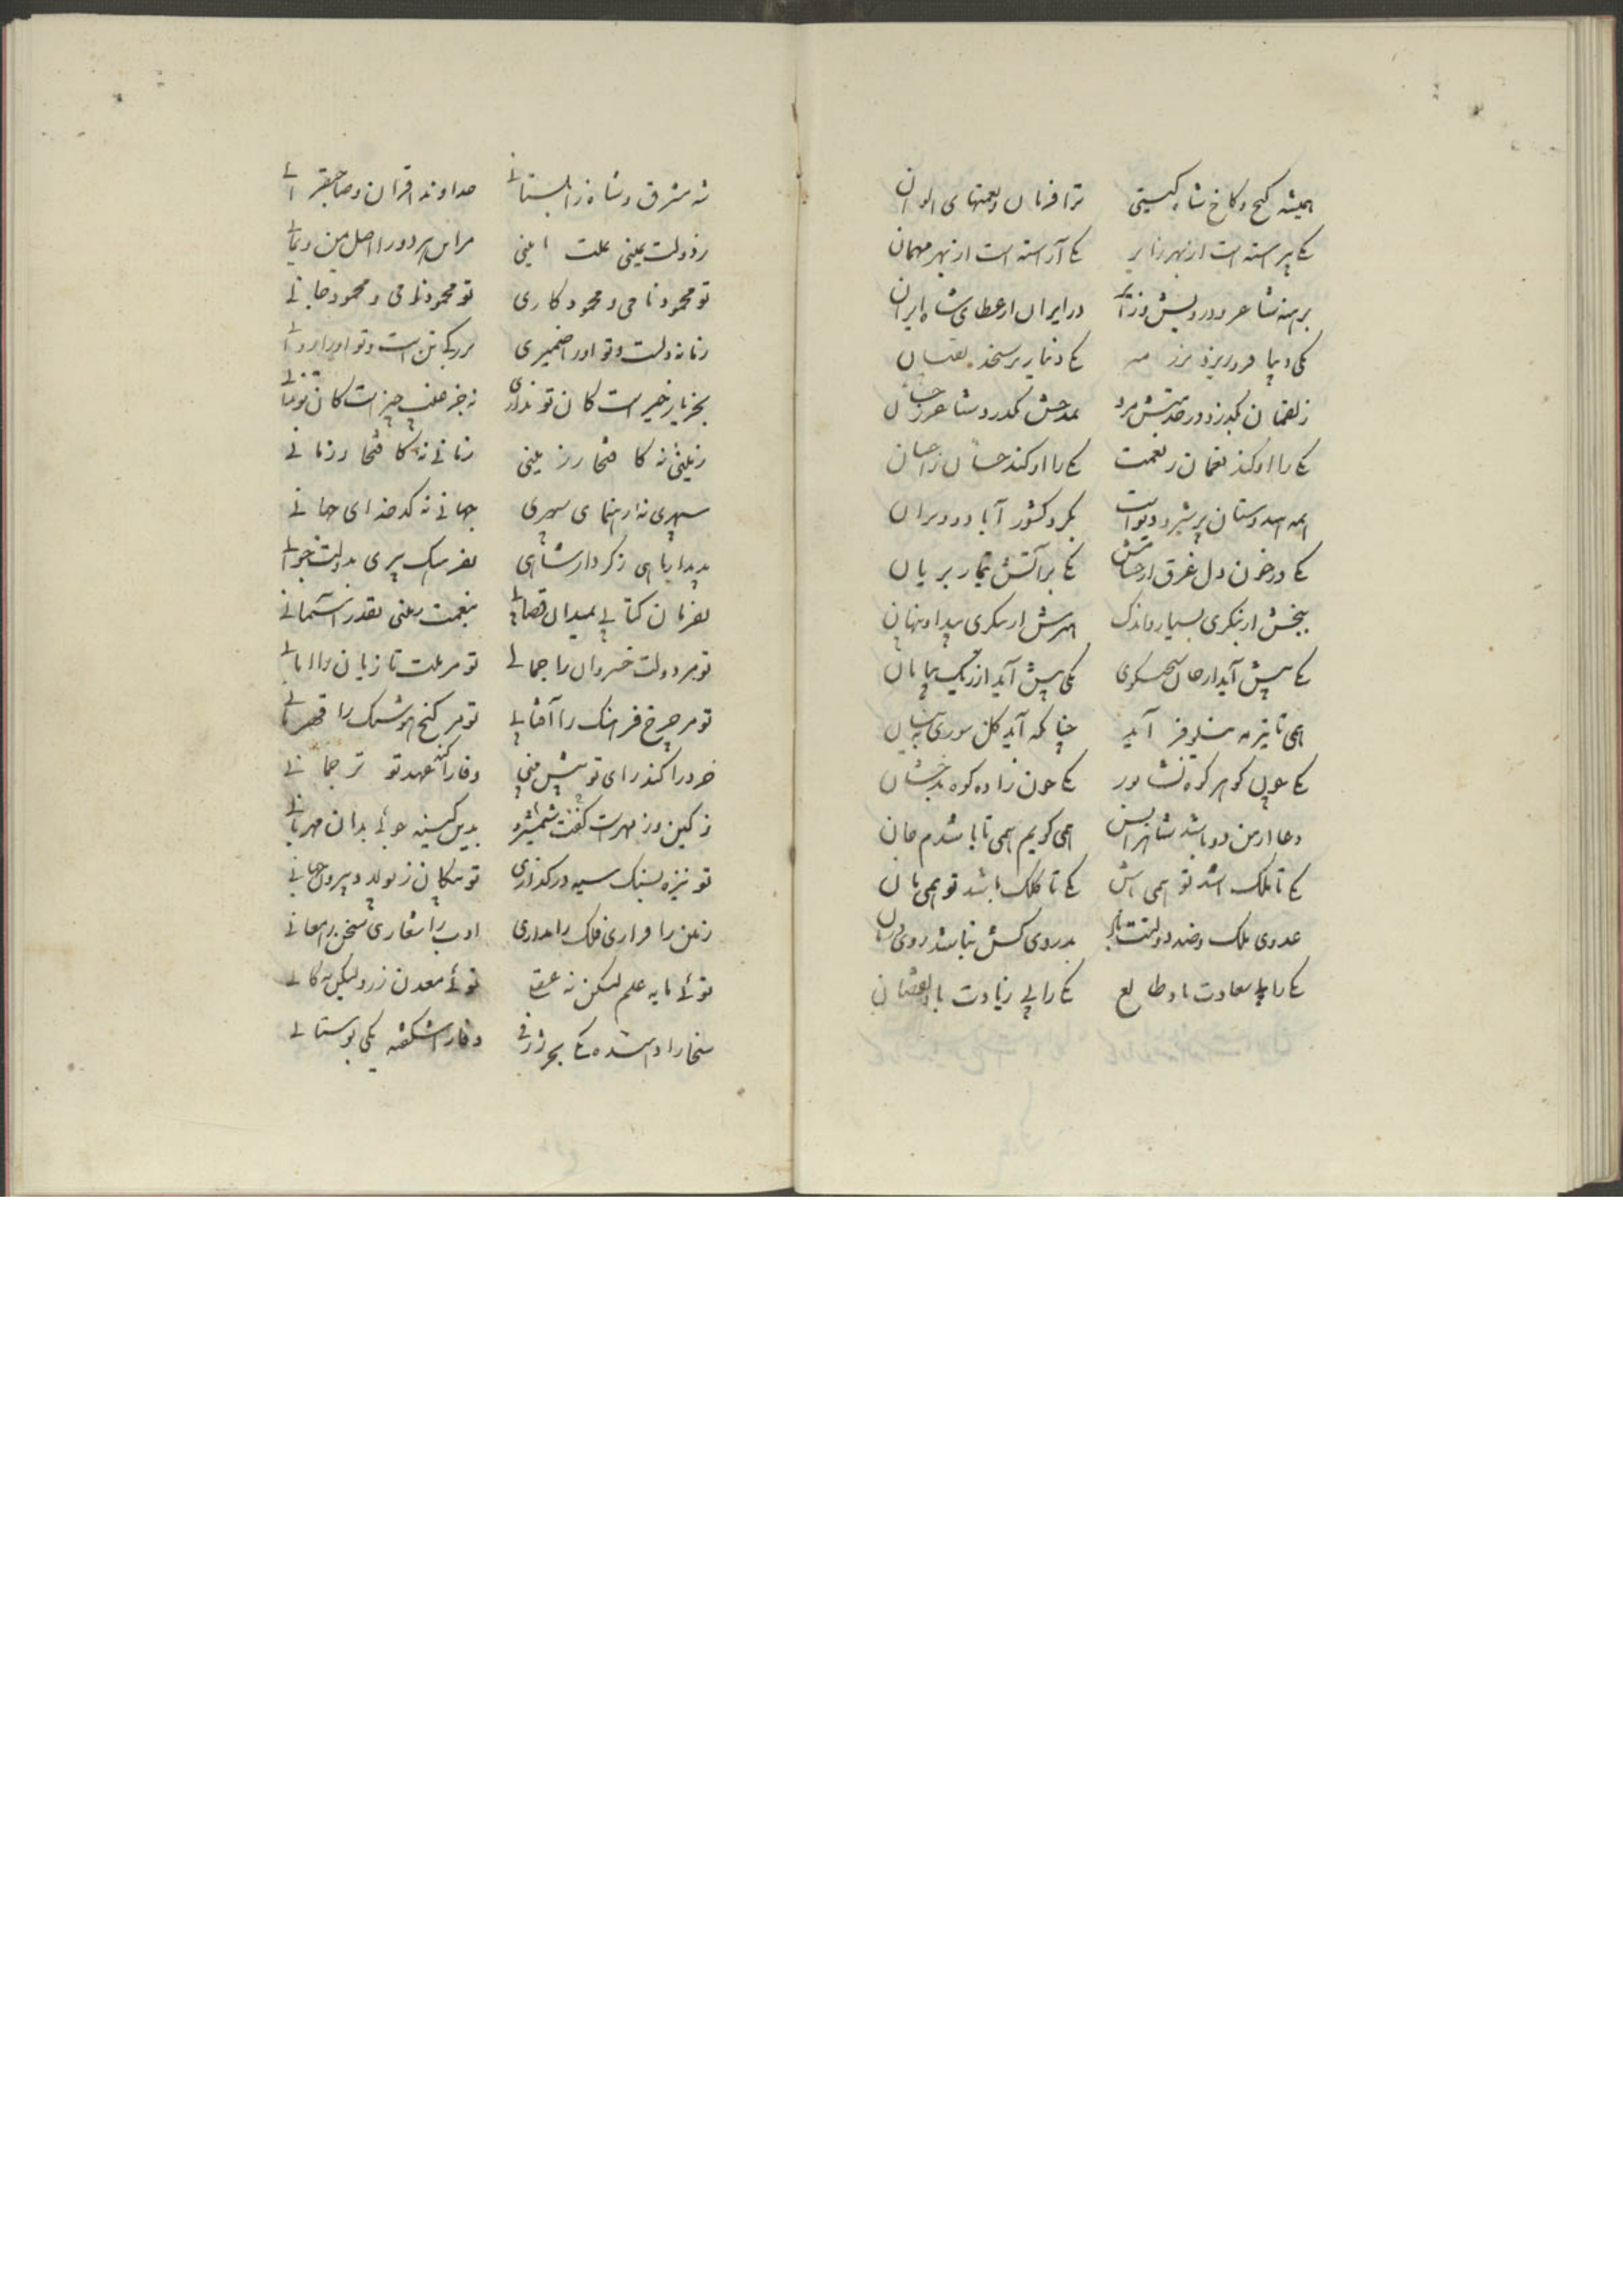 همیشه گنج و کاخ شاه گیتی ترا فرمان و نعمتهای الوان
یکی پیراسته است از بهر زایر یکی آراسته است از بهر مهمان
برهنه شاعر و درویش در ایران از عطای شاه ایران
یکی دیبا فرو ریزد برزمه یکی دینار بر سنجد
ز لقمان بگذرد در مرد بمدحش بگذرد شاعر ز حسان
یکی را او کند لقمان ز نعمت یکی را او کند حسان ز احسان
همه هندوستان پر شیر و بگرد کشور آباد و ویران
یکی در خون دل غرق یکی بر آتش تیمار بریان
ببخشش ار بنگری بسیار و اندک مهرش ار بنگری پیدا و پنهان
یکی پیش آید از یکی پیش آید از ریگ بیابان
همی تا تیر مه نیلوفر آید چنانکه آید گل سوری به نیسان
یکی چون گوهر کوه نشابور یکی چون زاده کوه بدخشان
دعا از من دو باشد همی گویم همی تا باشدم جان
یکی تا ملک باشد تو همی باش یکی تا کلک باشد تو همی مان
عدوی ملک و ضد دولتت بدردی کش نباشد روی درمان
یکی را با سعادت باد طالع یکی را بی زیادت باد نقصان
شه مشرق و شاه زابلستانی خداوند اقران و صاحبقرانی
ز دولت یمینی ملت امینی مر این هر دو را اصل یمن و یمانی
تو محمود نامی و محمود کاری تو محمود نامی و محمود جانی
زمانه دلست و تو او را ضمیری بزرگی تن است و تو او را روانی
بجز یار خیر است کان تو نداری نه جز غیب چیز است کان تو ندانی
زمینی نه کافتخار زمینی زمانی نه کافتخار زمانی
سپهری نه رهنمای سپهری جهانی نه کدخدای جهانی
بدیدار ماهی ز کردار شاهی بفرهنگ پیری بدولت جوانی
بفرمان کتابی بمیدان قضایی بنعمت زمینی بقدر آسمانی
تو مر دولت خسروان را جمالی تو مر ملت تازیان را امانی
تو مر چرخ فرهنگ را آفتابی تو مر گنج هوشنگ را قهرمانی
خرد را کند رای تو پیش بینی وفا را کند عهد تو ترجمانی
ز کین و ز مهرت گفت شمشیر و بدین کینه جوئی بدان مهربانی
تو نیزه بسنگ سیه در گذاری تو پیکان ز پولاد بیرون جهانی
زمین را قراری فلک را مداری ادب را شعاری سخن را معانی
توئی مایه علم لیکن نه عقلی توئی معدن زر ولیکن نه کانی
سخا را دلت شده یکی بحر ژرفی وفا را شکفته یکی بوستانی